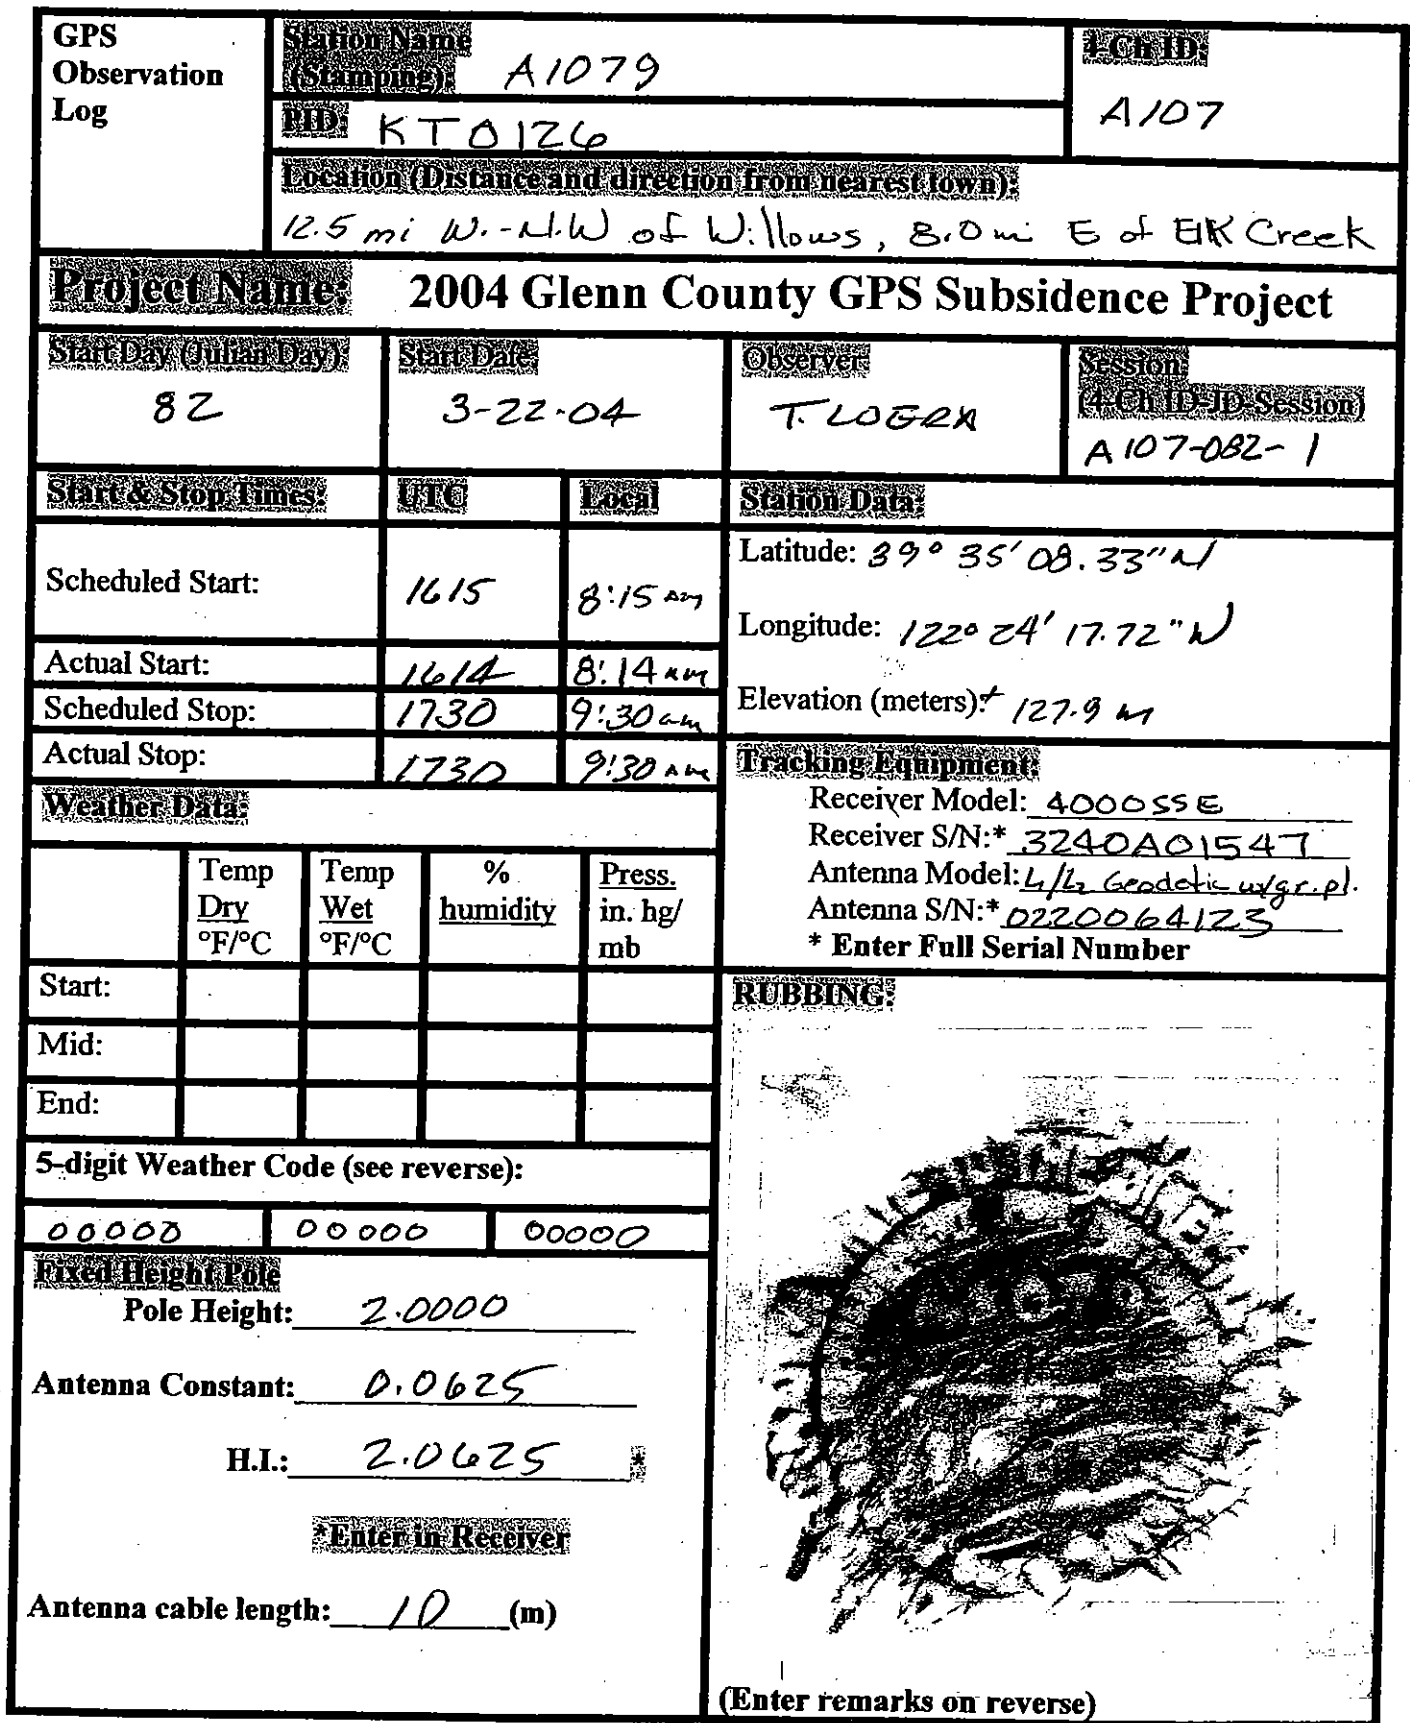 GPS
Observation
Log
Station Name
(Stamping): A1079
4-Ch ID:
A107
PID: KT0126
Location (Distance and direction from nearest town):
12.5 mi W.-N.W of Willows, 8.0 mi E of Elk Creek
Project Name: 2004 Glenn County GPS Subsidence Project
Start Day (Julian Day):
82
Start Date:
3-22-04
Observer:
T. LOERA
Session:
(4-Ch ID-JD-Session)
A107-082-1
Start & Stop Times: UTC Local
Scheduled Start: 1615 8:15 am
Actual Start: 1614 8:14 am
Scheduled Stop: 1730 9:30 am
Actual Stop: 1730 9:30 am
Station Data:
Latitude: 39° 35' 08.33" N
Longitude: 122° 24' 17.72" W
Elevation (meters): 127.9 m
Tracking Equipment:
Receiver Model: 4000SSE
Receiver S/N:* 3240A01547
Antenna Model: L1/L2 Geodetic w/gr.pl.
Antenna S/N:* 0220064123
* Enter Full Serial Number
Weather Data:
Temp
Dry
°F/°C
Temp
Wet
°F/°C
%
humidity
Press.
in. hg/
mb
Start:
Mid:
End:
5-digit Weather Code (see reverse):
00000 00000 00000
Fixed Height Pole
Pole Height: 2.0000
Antenna Constant: 0.0625
H.I.: 2.0625 *
*Enter in Receiver
Antenna cable length: 10 (m)
RUBBING:
(Enter remarks on reverse)